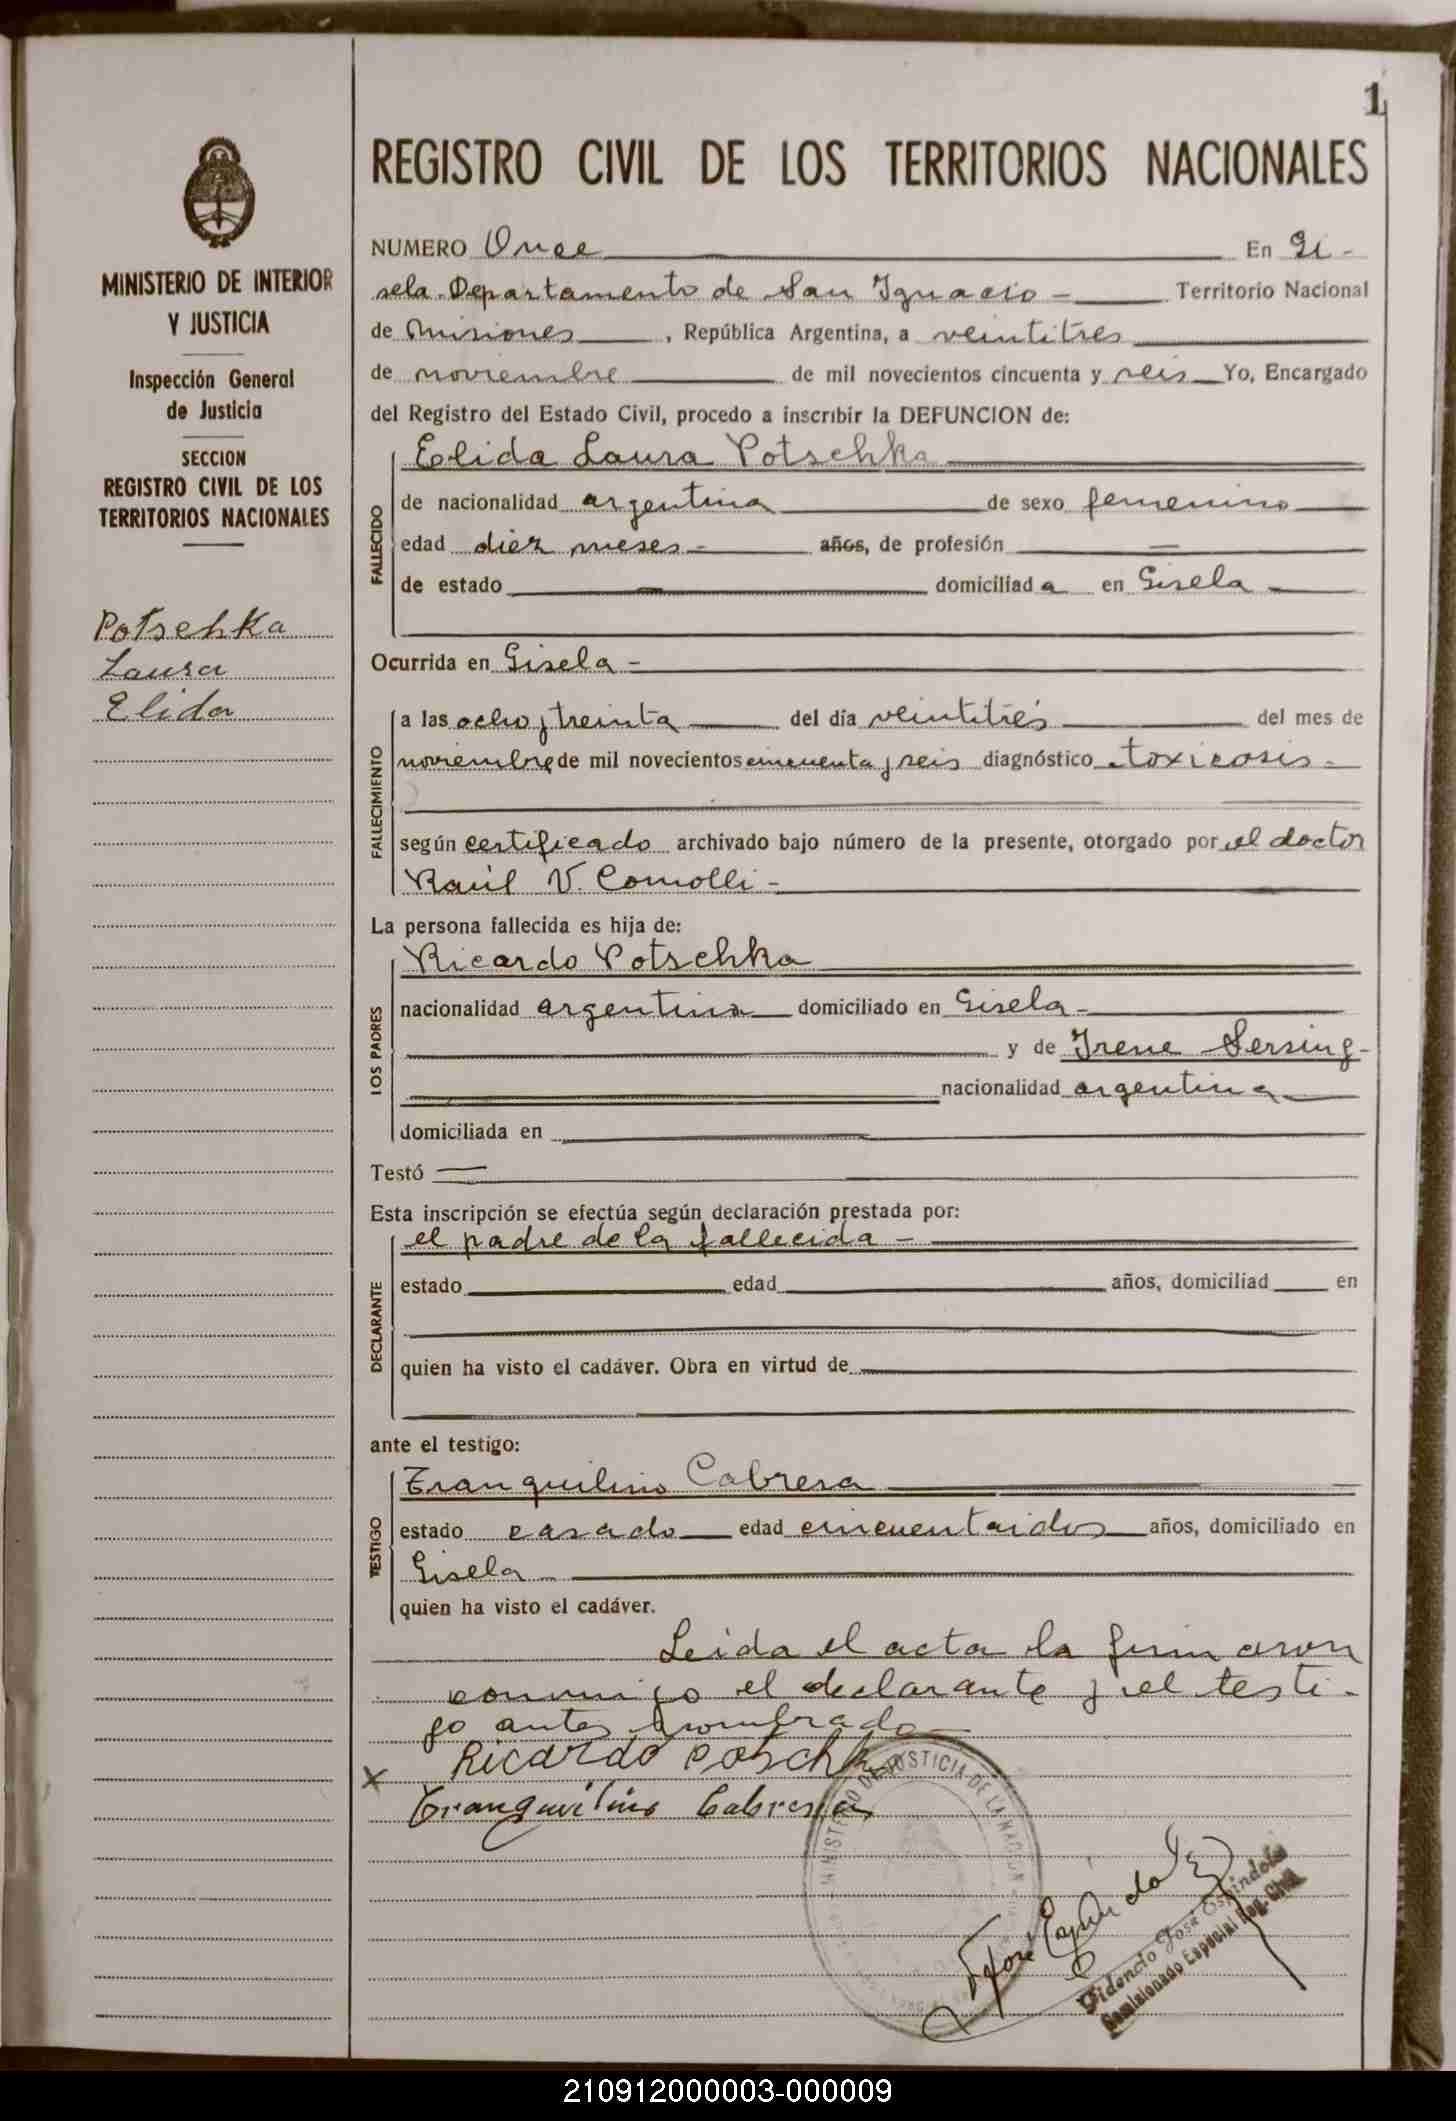 1
MINISTERIO DE INTERIOR
Y JUSTICIA
Inspección General
de Justicia
SECCION
REGISTRO CIVIL DE LOS
TERRITORIOS NACIONALES
Potschka
Laura
Elida
REGISTRO CIVIL DE LOS TERRITORIOS NACIONALES
NUMERO Once En Gi-
sela. Departamento de San Ignacio - Territorio Nacional
de Misiones, República Argentina, a veintitres
de noviembre de mil novecientos cincuenta y seis Yo, Encargado
del Registro del Estado Civil, procedo a inscribir la DEFUNCION de:
FALLECIDO
Elida Laura Potschka
de nacionalidad argentina de sexo femenino
edad diez meses - años, de profesión —
de estado — domiciliada en Gisela
Ocurrida en Gisela -
FALLECIMIENTO
a las ocho y treinta del día veintitrés del mes de
noviembre de mil novecientos cincuenta y seis diagnóstico toxicosis -
según certificado archivado bajo número de la presente, otorgado por el doctor
Raúl V. Comolli -
La persona fallecida es hija de:
LOS PADRES
Ricardo Potschka
nacionalidad argentina domiciliado en Gisela -
y de Irene Sersing -
nacionalidad argentina
domiciliada en
Testó —
Esta inscripción se efectúa según declaración prestada por:
DECLARANTE
el padre de la fallecida -
estado edad años, domiciliad en
quien ha visto el cadáver. Obra en virtud de
ante el testigo:
TESTIGO
Tranquilino Cabrera
estado casado edad cincuentaidos años, domiciliado en
Gisela
quien ha visto el cadáver.
Leida el acta la firmaron
conmigo el declarante y el testi-
go antes nombrado
Ricardo Potschka
x
Tranquilino Cabrera
MINISTERIO DE JUSTICIA DE LA NACION
F José Espíndola
Fidencio José Espíndola
Comisionado Especial Reg. Civil
210912000003-000009